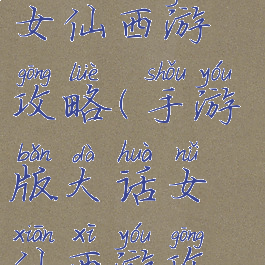 女仙西游
gōng lüè shǒu yóu
攻略(手游
bǎn dà huà nǚ
版大话女
xiān xī yóu gōng
仙西游攻